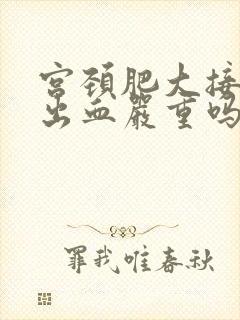 宫颈肥大接
出血严重吗
罪我唯春秋